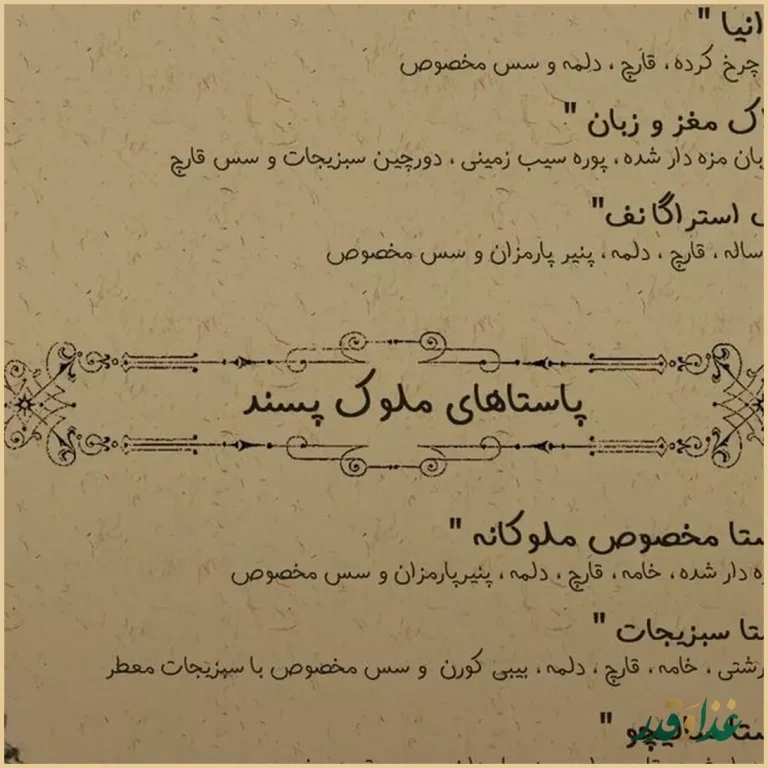 انیا "
چرخ کرده، قارچ، دلمه و سس مخصوص
ک مغز و زبان "
بان مزه دار شده، پوره سیب زمینی، دورچین سبزیجات و سس قارچ
استراگانف"
ساله، قارچ، دلمه، پنیر پارمزان و سس مخصوص
پاستاهای ملوک پسند
ستا مخصوص ملوکانه "
ه دار شده، خامه، قارچ، دلمه، پنیرپارمزان و سس مخصوص
ستا سبزیجات "
رشتی، خامه، قارچ، دلمه، بیبی کورن و سس مخصوص با سبزیجات معطر